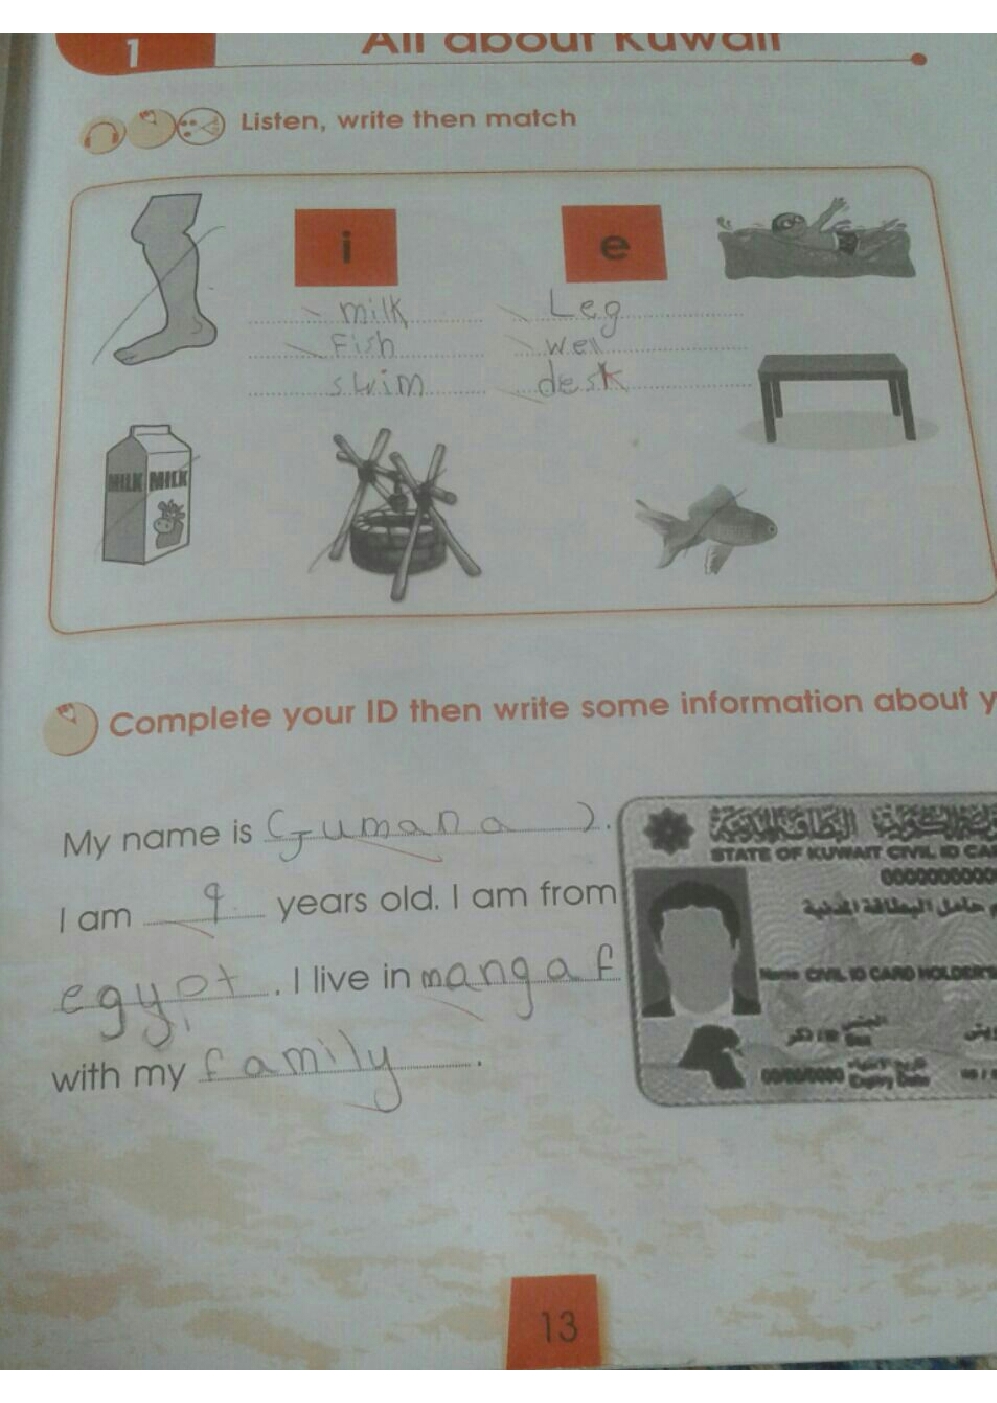 1
All about Kuwait
Listen, write then match
i
e
milk
Leg
Fish
Well
swim
desk
MILK MILK
Complete your ID then write some information about y
My name is (Jumana).
I am 9 years old. I am from
egypt. I live in mangaf
with my family.
STATE OF KUWAIT CIVIL ID CA
0000000000
Name CIVIL ID CARD HOLDER'S
Sex
00/00/0000 Expiry Date
13